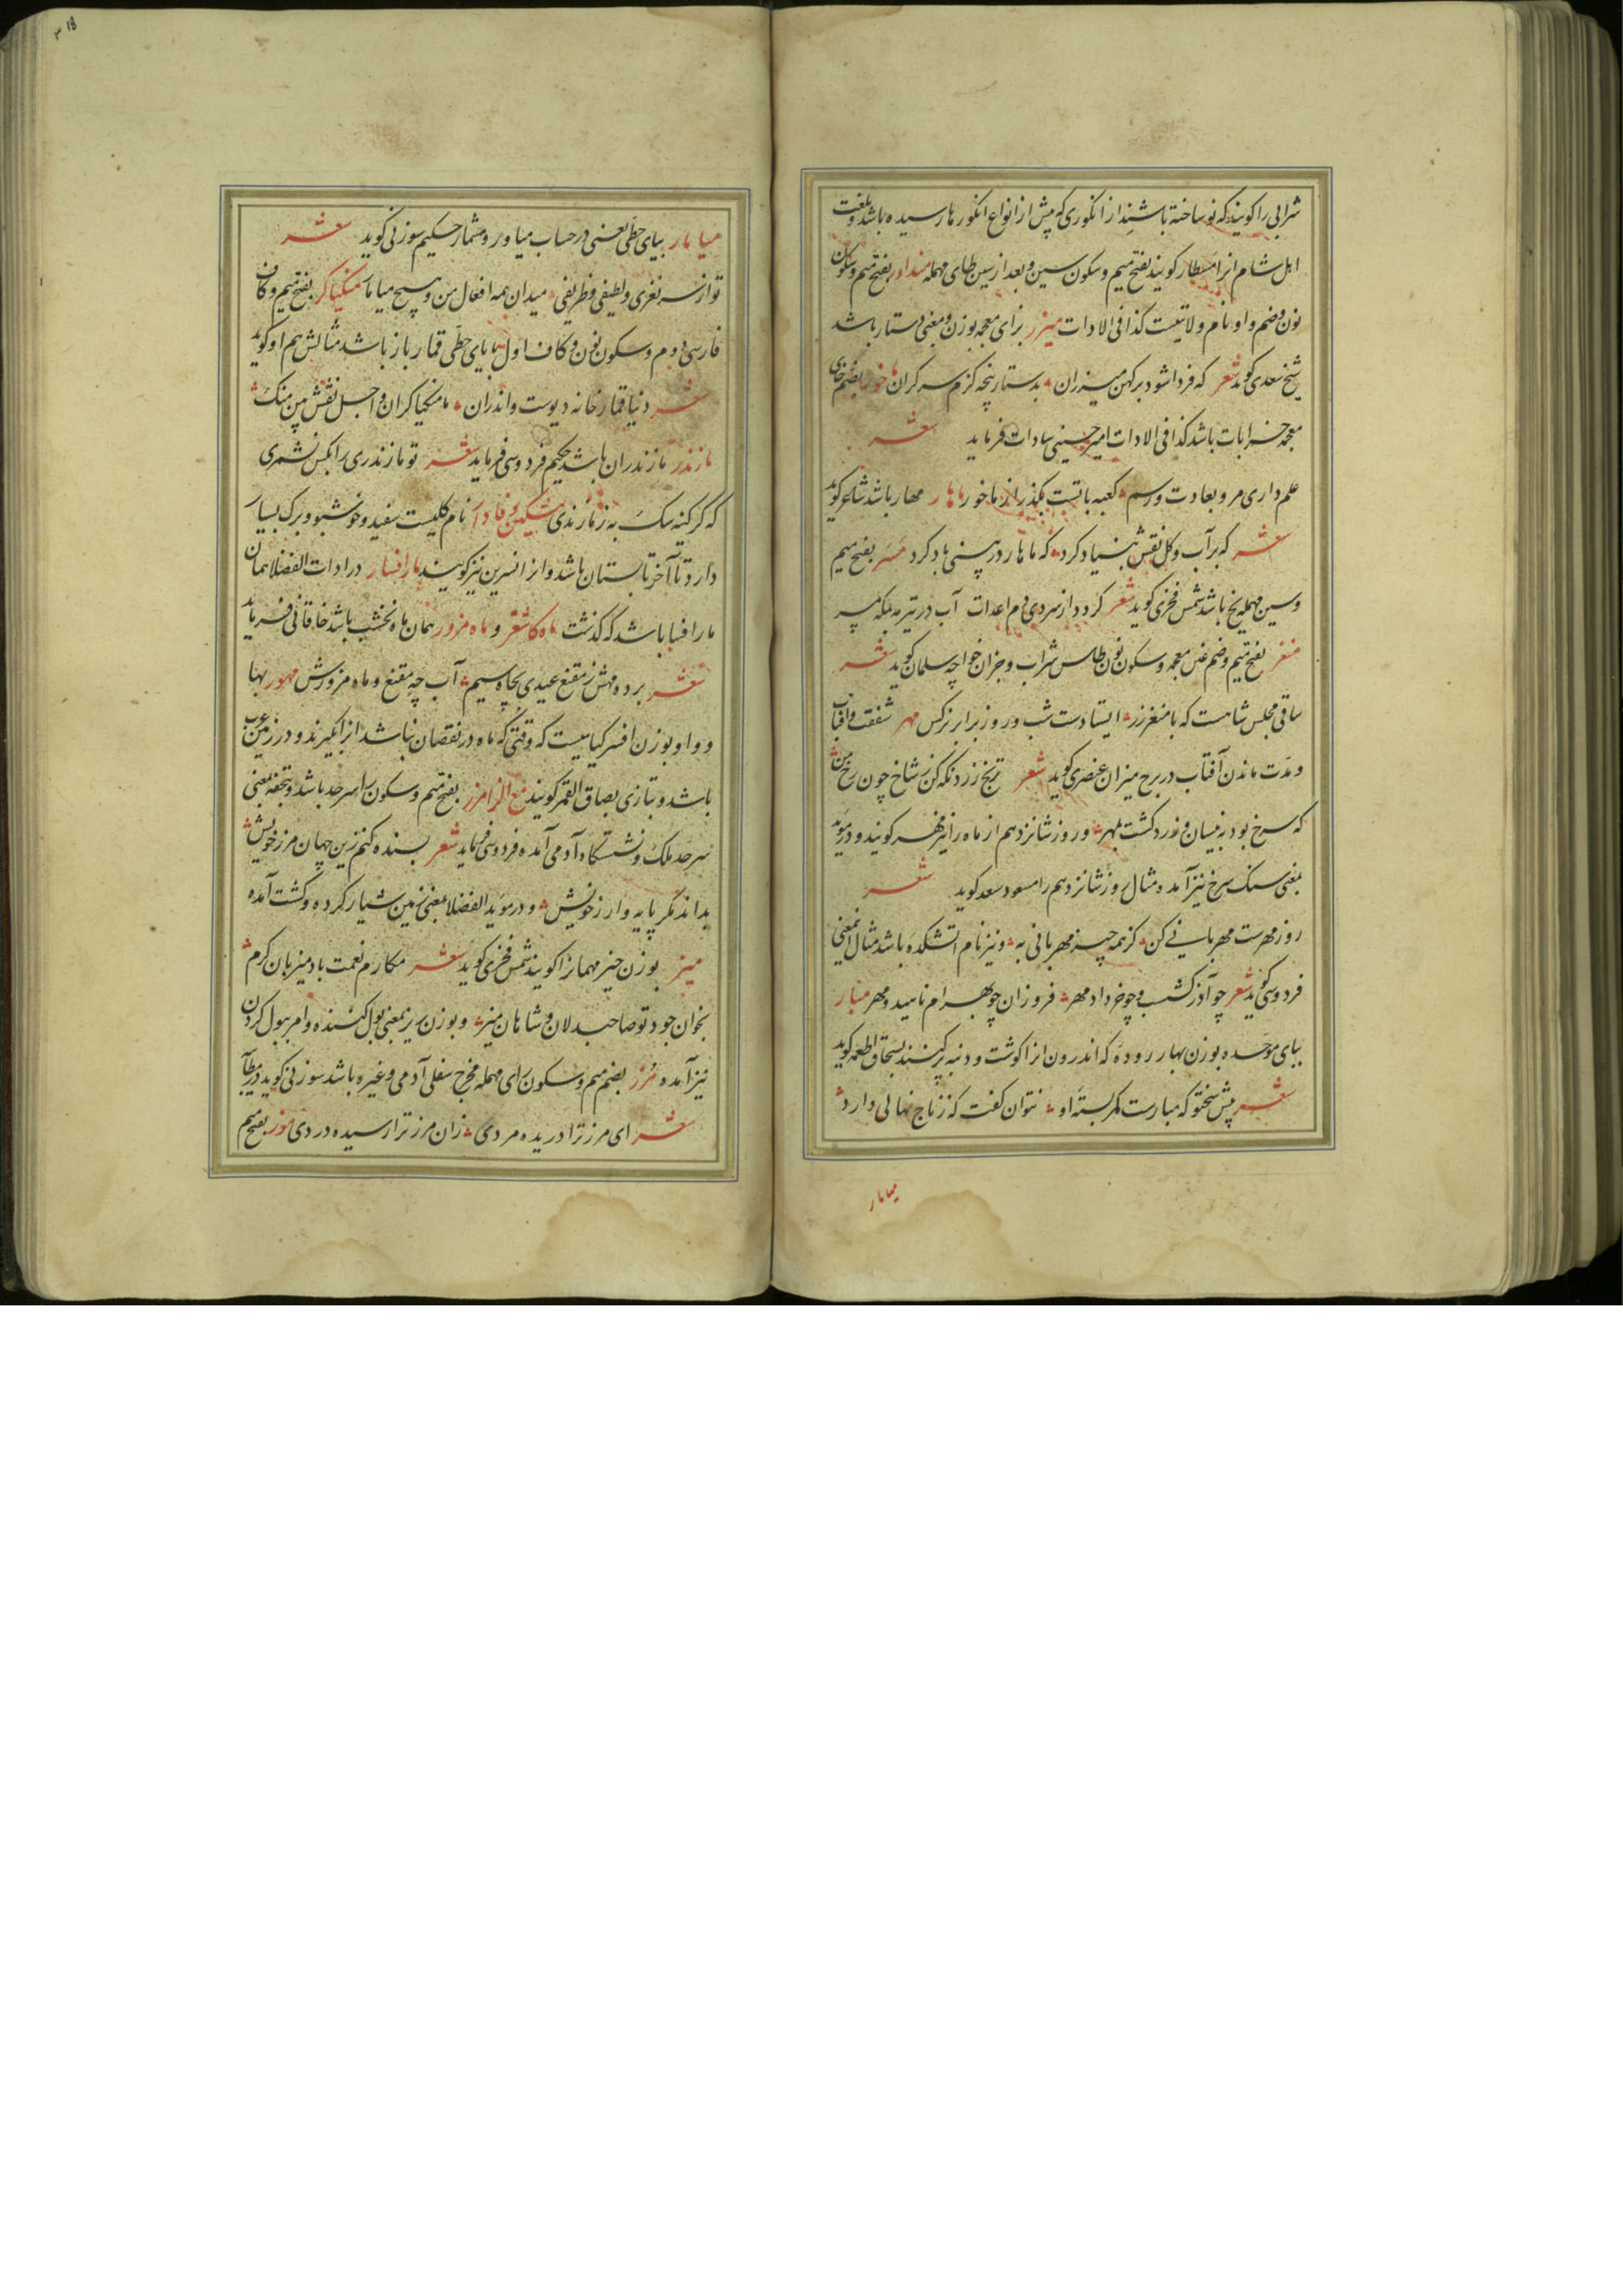 شرابی را کویند که نو ساخته باشند از انکوری که پیش از انواع انکورها رسیده باشد و بلغت
اهل شام انرا مسطار کویند بفتح میم و سکون سین و بعد از سین طای مهمله منداور بفتح میم و سکون
نون و ضم واو نام ولاتیست کذا فی الادات میزر بزای معجمه بوزن و معنی دستار باشد
شیخ سعدی کوید شعر که فردا شود بر کهن میزران بدستار پنجه کزم سر کران ماخور بضم خای
معجمه خرابات باشد کذا فی الادات امیر حسینی سادات فرماید شعر
علم داری مرو بعادت و رسم کعبه باتست بکذر از ماخور ماهار مهار باشد شاعر کوید
شعر که بر آب و کل نقش بنیاد کرد که ماهار در بینی باد کرد مسر بفتح میم
و سین مهمله یخ باشد شمس فخری کوید شعر کردد از سردی دم اعدات آب در تیر مه بلکه مسر
منغر بفتح میم و ضم غین معجمه و سکون نون طاس شراب و جز ان خواجه سلمان کوید شعر
ساقی مجلس شاهست که با منغر زر ایستادست شب و روز برابر نرکس مهر شفقت و افتاب
و مدت ماندن آفتاب در برج میزان عنصری کوید شعر ترنج زرد نکه کن ز شاخ چون رخ من
که سرخ بود به نیسان و زرد کشت بمهر و روز شانزدهم از ماه را نیز مهر کویند و در موید
بمعنی سنک سرخ نیز آمده مثال روز شانزدهم را مسعود سعد کوید شعر
روز مهرست مهربانی کن کز همه چیز مهربانی به و نیز نام اتشکده باشد مثال اینمعنی
فردوسی کوید شعر چو آذر کشسب و چو خرداد مهر فروزان چو بهرام ناهید و مهر مبار
ببای موحده بوزن بهار روده که اندرون انرا کوشت و دنبه پر کنند بسحاق اطعمه کوید
شعر پیش سختو که مبارست کمر بسته او نتوان کفت که زناج نهالی دارد
میامار
میامار بیای حطی یعنی در حساب میاور و مشمار حکیم سوزنی کوید شعر
تو از سر نغزی و لطیفی و ظریفی میدان همه افعال من و هیچ میامار منکیاکر بفتح میم و کاف
فارسی دوم و سکون نون و کاف اول بیای حطی قمار باز باشد مثالش هم او کوید
شعر دنیا قمار خانه دیوست و اندران ما منکیاکران و اجل نقش بین منک
مازندر مازندران باشد حکیم فردوسی فرماید شعر تو مازندری را بکس نشمری
که کر کینه سک به ز مازندری مشکین و فادار نام کلیست سفید و خوشبو و برک بسیار
دارد تا آخر تابستان باشد و انرا نسرین نیز کویند مار افسار در ادات الفضلا همان
مار افسا باشد که کذشت ماه کاشغر و ماه مزور همان ماه نخشب باشد خاقانی فرماید
شعر برده مهش ز مقنع عیدی بچاه سیم آب چه مقنع و ماه مزورش مهور بها
و واو بوزن افسر کیاهیست که وقتی که ماه در نقصان نباشد انرا بکیرند و در زمین عرب
باشد و بتازی بصاق القمر کویند مع الزا مرز بفتح میم و سکون را سرحد باشد و بتحفه بمعنی
سرحد ملک و نشستکاه آدمی آمده فردوسی فرماید شعر بسنده کنم زین جهان مرز خویش
بداند مکر پایه و ارز خویش و در موید الفضلا بمعنی زمین شیار کرده و کشت آمده
میز بوزن حیز مهمانرا کویند شمس فخری کوید شعر مکارم نعمت باد میزبان کرم
بخوان جود تو صاحبدلان و شاهان میز و بوزن ریز بمعنی بول کننده و امر ببول کردن
نیز آمده مرز بضم میم و سکون رای مهمله مخرج سفلی آدمی و غیره باشد سوزنی کوید در مطآ
شعر ای مرز ترا دریده مردی زان مرز ترا رسیده دردی موز بفتح میم